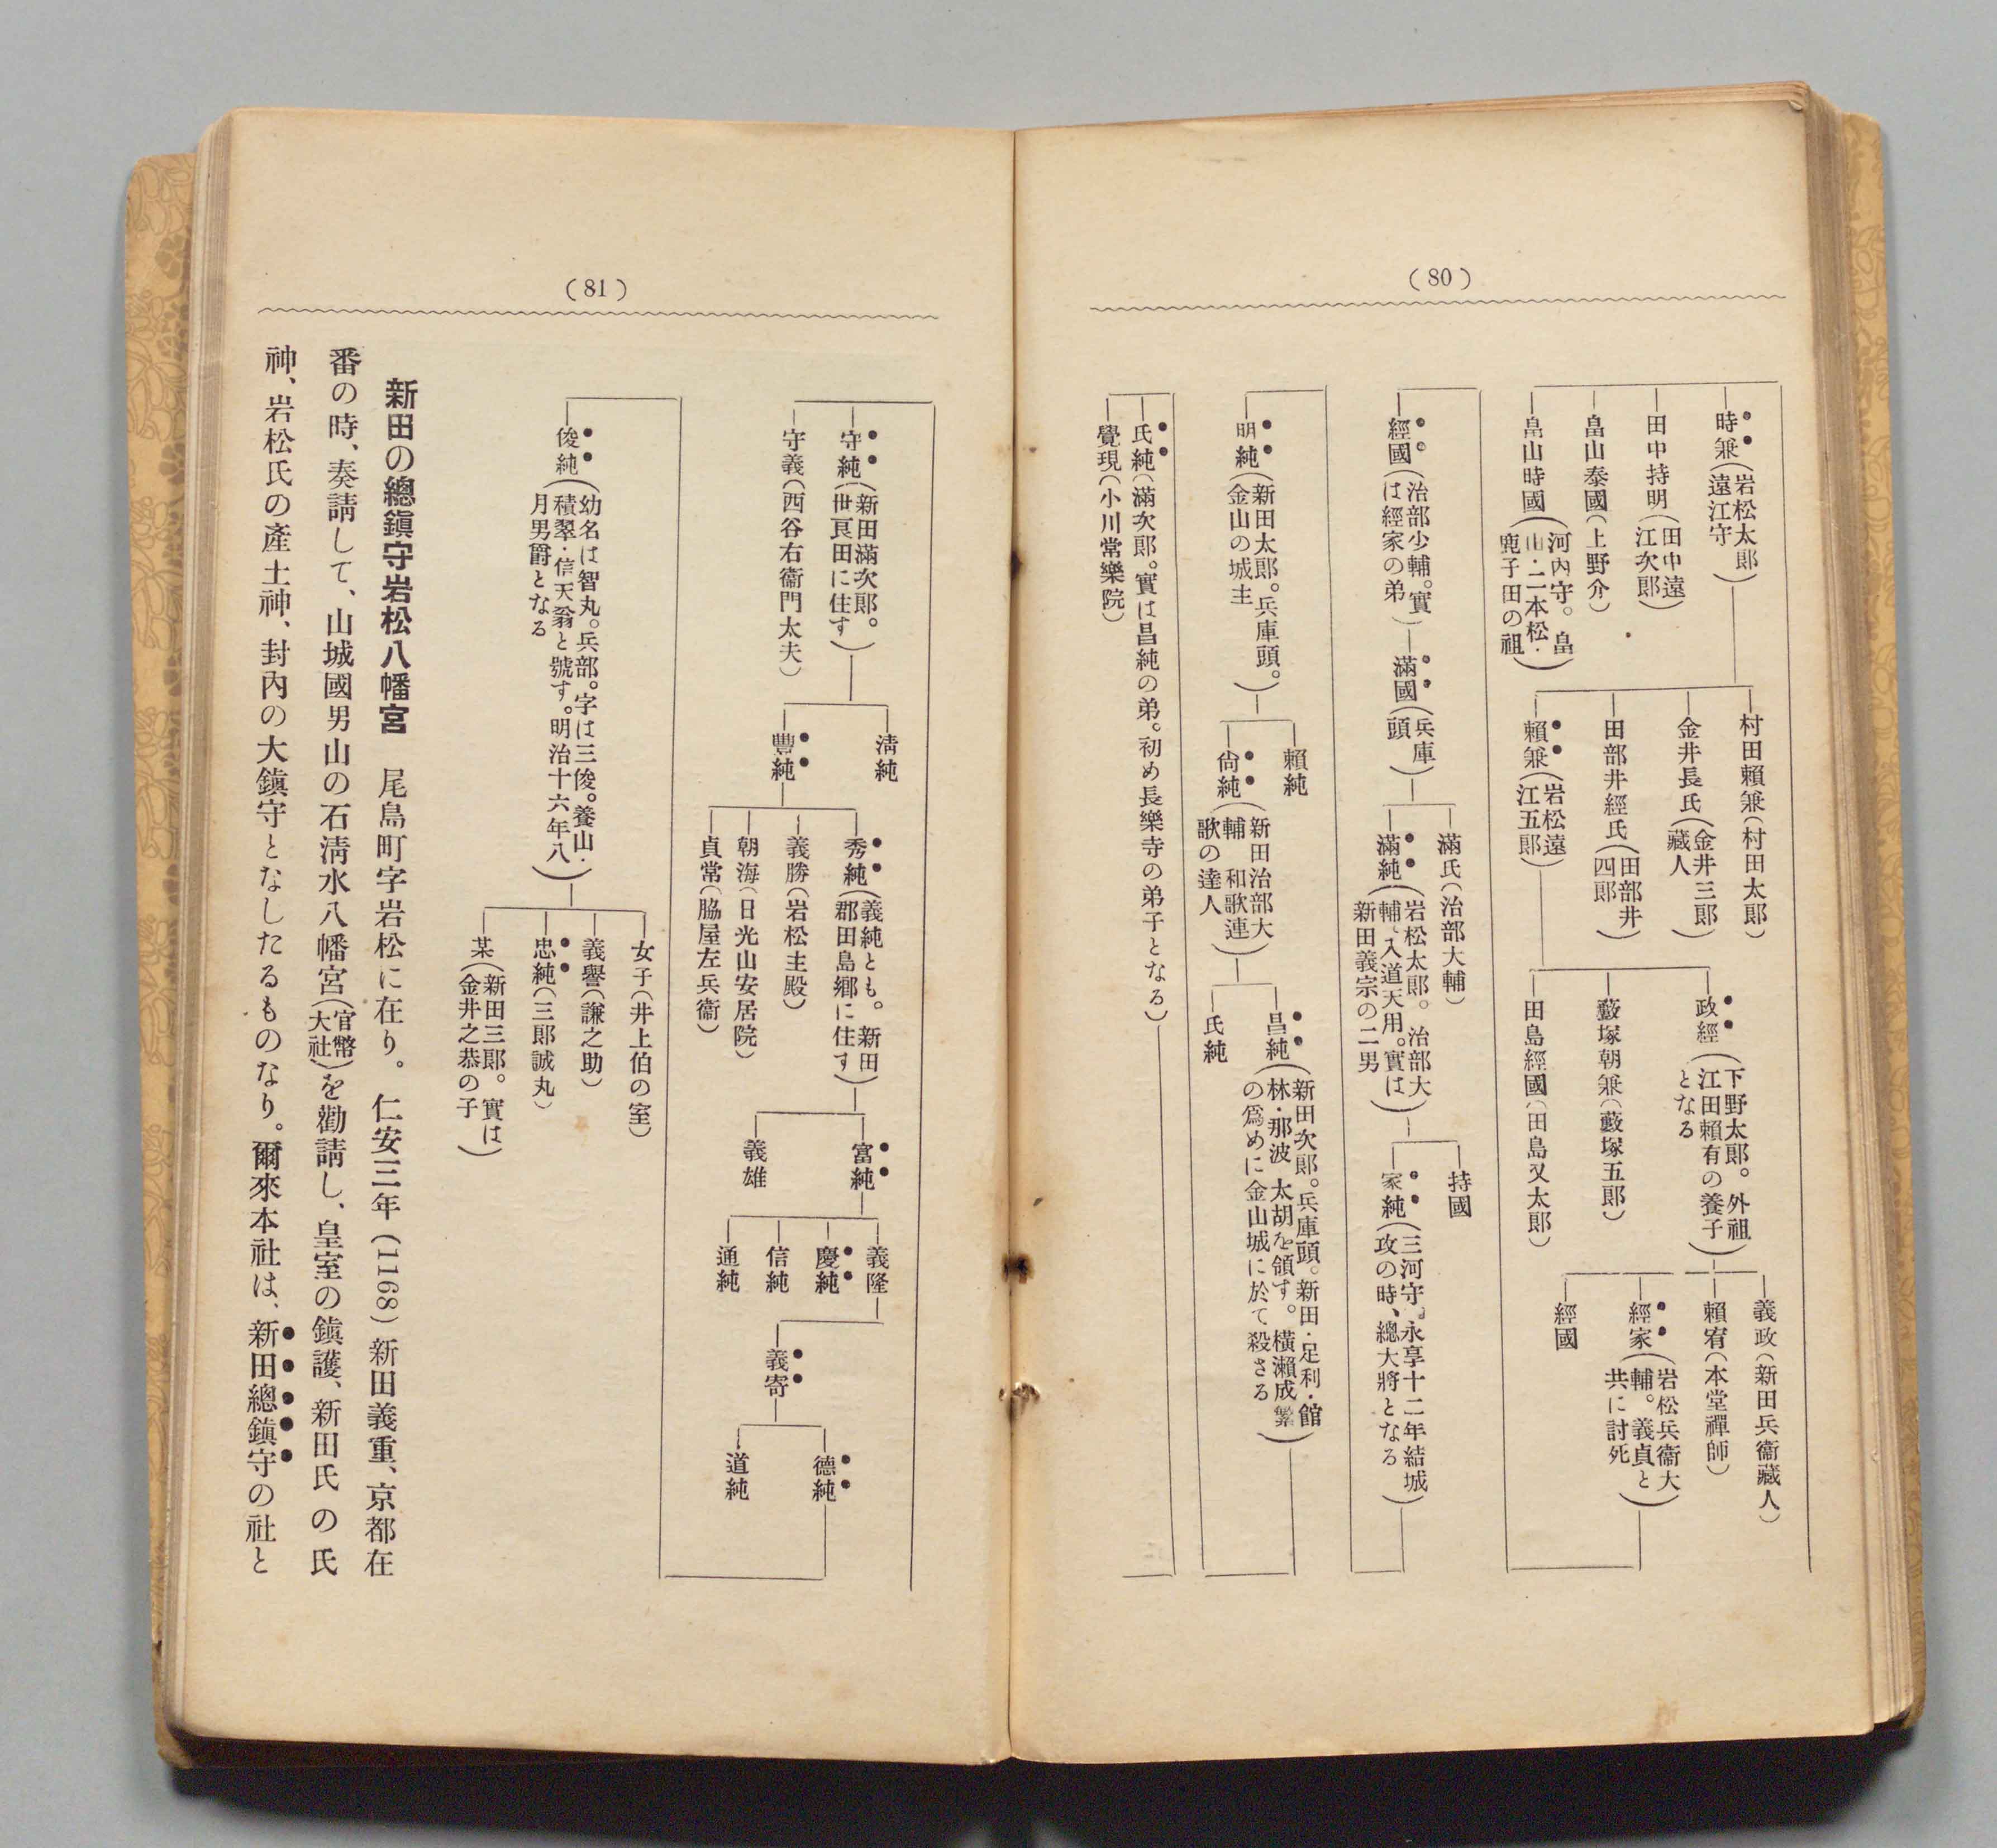 (80)
時兼(岩松太郎
遠江守)
田中持明(田中遠
江次郎)
畠山泰國(上野介)
畠山時國(河內守。畠
山・二本松・
鹿子田の祖)
村田賴兼(村田太郎)
金井長氏(金井三郎
藏人)
田部井經氏(田部井
四郎)
賴兼(岩松遠
江五郎)
政經(下野太郎。外祖
江田賴有の養子
となる)
藪塚朝兼(藪塚五郎)
田島經國(田島又太郎)
義政(新田兵衞藏人)
賴宥(本堂禪師)
經家(岩松兵衞大
輔。義貞と
共に討死)
經國
經國(治部少輔。實
は經家の弟)
滿國(兵庫
頭)
滿氏(治部大輔)
滿純(岩松太郎。治部大
輔、入道天用。實は
新田義宗の二男)
持國
家純(三河守。永享十二年結城
攻の時、總大將となる)
明純(新田太郎。兵庫頭。
金山の城主)
賴純
尙純(新田治部大
輔 和歌連
歌の達人)
昌純(新田次郎。兵庫頭。新田・足利・館
林・那波 太胡を領す。橫瀨成繁
の爲めに金山城に於て殺さる)
氏純
氏純(滿次郎。實は昌純の弟。初め長樂寺の弟子となる)
覺現(小川常樂院)
(81)
守純(新田滿次郎。
世良田に住す)
守義(西谷右衞門太夫)
淸純
豐純
秀純(義純とも。新田
郡田島鄕に住す)
義勝(岩松主殿)
朝海(日光山安居院)
貞常(脇屋左兵衞)
富純
義雄
義隆
慶純
信純
通純
義寄
德純
道純
俊純(幼名は智丸。兵部。字は三俊。養山・
積翠・信天翁と號す。明治十六年八
月男爵となる)
女子(井上伯の室)
義譽(謙之助)
忠純(三郎誠丸)
某(新田三郎。實は
金井之恭の子)
新田の總鎭守岩松八幡宮 尾島町字岩松に在り。仁安三年(1168)新田義重、京都在
番の時、奏請して、山城國男山の石淸水八幡宮(官幣大社)を勸請し、皇室の鎭護、新田氏の氏
神、岩松氏の產土神、封內の大鎭守となしたるものなり。爾來本社は、新田總鎭守の社と